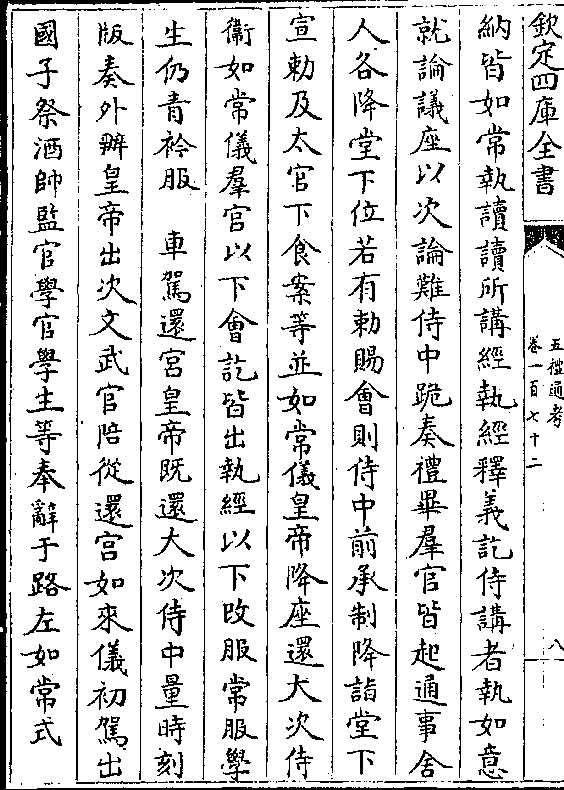 欽定四庫全書
五禮通考
卷一百七十二
八
納皆如常執讀讀所講經執經釋義訖侍講者執如意
就論議座以次論難侍中跪奏禮畢羣官皆起通事舍
人各降堂下位若有勅賜會則侍中前承制降詣堂下
宣勅及太官下食案等並如常儀皇帝降座還大次侍
衞如常儀羣官以下會訖皆出執經以下改服常服學
生仍青衿服　車駕還宫皇帝既還大次侍中量時刻
版奏外辦皇帝出次文武官陪從還宫如來儀初駕出
國子祭酒帥監官學官學生等奉辭于路左如常式